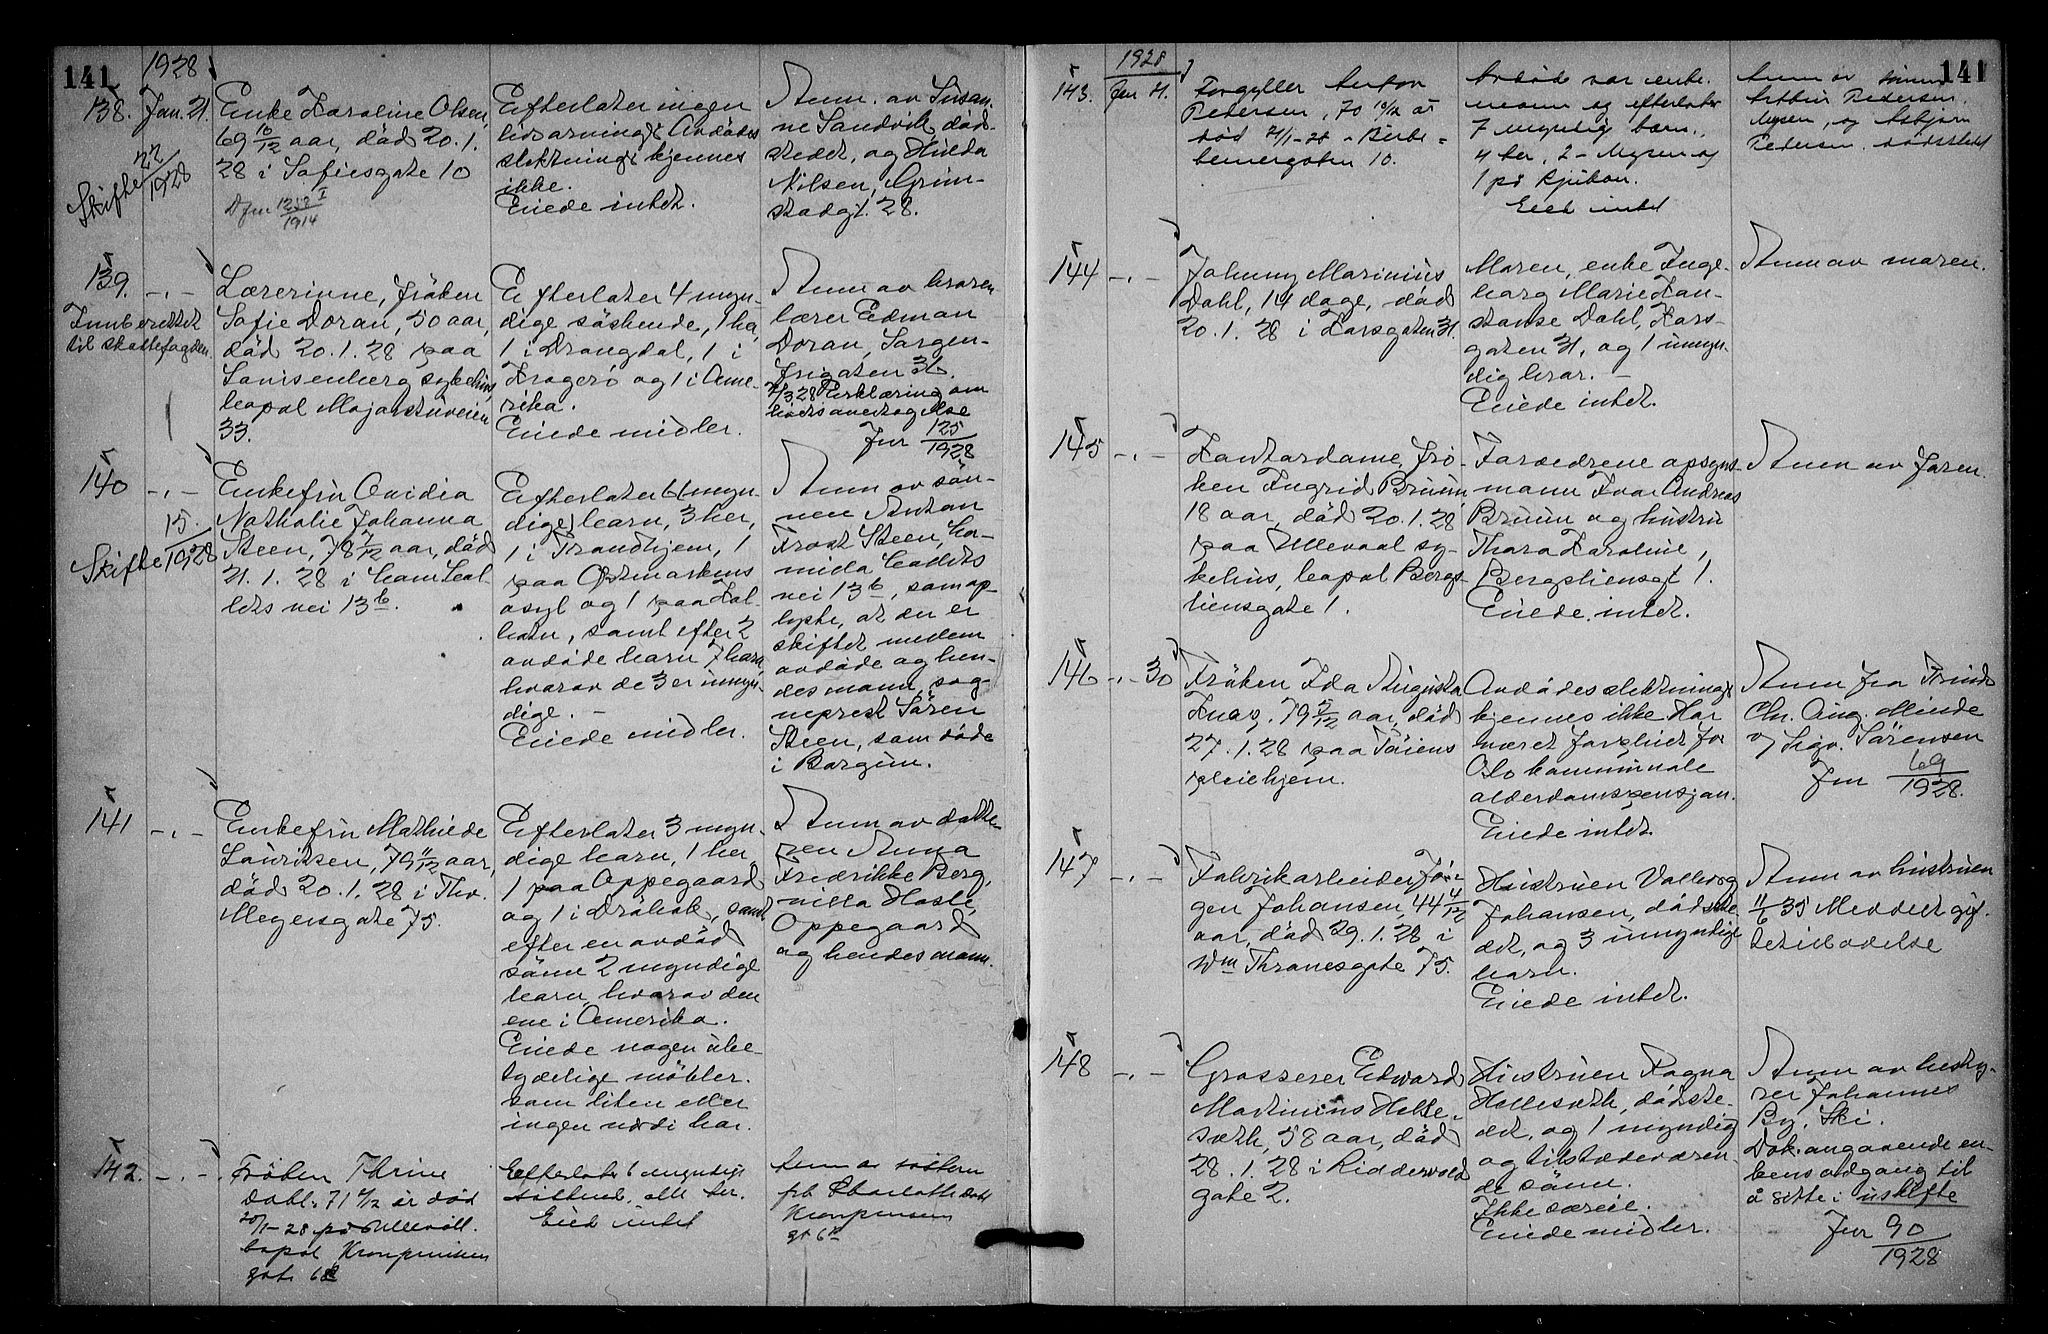 141
1928
138. Jan. 21.
Skifte 22/1928
Enke Karoline Olsen,
69 10/12 aar, död 20.1.
28 i Sofiesgate 10
Dfm 1253 I/1914
Efterlater ingen
livsarving. Avdödes
slektning. kjennes
ikke.
Eiede intet.
Anm. av Susan-
ne Sandvik, död-
stedet, og Hulda
Nilsen, Grim-
stadgt. 28.
139. -,-
Innberettet
til skattefogden.
Lærerinne, fröken
Sofie Doran, 50 aar,
död 20.1.28 paa
Lovisenberg sykehus,
bopæl Majorstuveien
33.
Efterlater 4 myn-
dige söskende, 1 her,
1 i Drangdal, 1 i
Kragerø og 1 i Ame-
rika.
Eiede midler.
Anm av broren
lærer Edman
Doran, Sorgen-
frigaten 36.
Erklæring om
bvets overtagelse
Jnr 125/1928
140 -,-
Skifte 15./1928
Enkefru Ovidia
Nathalie Johanna
Steen, 78 7/12 aar, död
21.1.28 i Cam. Col-
letts vei 13 b.
Efterlater 6 myn-
dige barn, 3 her,
1 i Trondhjem, 1
paa Östmarkens
asyl og 1 paa Kol-
botn, samt efter 2
avdöde barn 7 barn,
hvorav de 3 er umyn-
dige. -
Eiede midler.
Anm av sön-
nen Anton
Frost Steen, Ca-
milla Colletts
vei 13 b, som op-
lyste, at der er
skiftet mellem
avdöde og hen-
des mann, sog-
neprest Sören
Steen, som döde
i Borgun.
141 -,-
Enkefru Mathilde
Lauritsen, 79 11/12 aar,
död 20.1.28 i Thv.
Meyersgate 75.
Efterlater 3 myn-
dige barn, 1 her
1 paa Oppegaard
og 1 i Dröbak, samt
efter en avdöd
sönn 2 myndige
barn, hvorav den
ene i Amerika.
Eiede nogen ube-
tydelige möbler.
som liten eller
ingen verdi har.
Anm av datte-
ren Anna
Fredrikke Berg,
villa Hasle,
Oppegaard
og hendes mann.
142. -,-
Fröken Thrine
Dahl, 71 4/12 år död
20/1-28 på Ullevål.
bopæl Kronprinsens
gate 6 B
Efterlater 6 myndige
söskend, alle her.
Eiet intet
Anm av söstern
frk Charlotte Dahl
Kronprinsens
gt 6 B
141
1928
143. Jan 21.
Forgyller Anton
Pedersen, 70 10/12 år
död 21/1-28 - Birke-
beinergaten 10.
Avdöde var enke-
mann og efterlater
7 myndig barn.,
4 her, 2 - Mysen og
1 på Rjukan.
Eiet intet
Anm av sönnen
Arthur Pedersen.
Mysen, og Asbjörn
Pedersen, dödsstedet
144 -,-
Johnny Marinius
Dahl, 14 dage, död
20.1.28 i Korsgaten 31.
Moren, enke Inge-
borg Marie Kon-
stanse Dahl, Kors-
gaten 31, og 1 umyn-
dig bror. -
Eiede intet.
Anm av moren.
145 -,-
Kontordame, frö-
ken Ingrid Bruun,
18 aar, död 20.1.28
paa Ullevaal sy-
kehus, bopæl Bergs-
liensgate 1.
Foreldrene opsyns-
mann Ivar Andreas
Bruun og hustru
Thora Karoline,
Bergsliensgt 1.
Eiede intet.
Anm av faren.
146 -,- 30
Fröken Ida Augusta
Knag, 79 5/12 aar, död
27.1.28 paa Töiens
pleiehjem.
Avdödes slektning.
kjennes ikke. Har
været forpleiet for
Oslo kommunale
alderdomspensjon.
Eiede intet.
Anm fra
Chr. Aug. Minde
v/ Sigv. Sörensen
Jnr 69/1928.
147 -,-
Fabrikarbeider Jör-
gen Johansen, 44 4/12
aar, död 29.1.28 i
Wm Thranesgate 75.
Hustruen Valborg
Johansen, dödste-
det, og 3 umyndige
barn.
Eiede intet.
Anm av hustruen
11/6 35 Meddelt gif-
tetilladelse
148 -,-
Grosserer Edward
Martinius Helle-
sæth, 58 aar, död
28.1.28 i Riddervold
gate 2.
Hustruen Ragna
Hellesæth, dödste-
det, og 1 myndig
og tilstedeværen
de sönn.
Ikke særeie.
Eiede midler.
Anm av besty-
rer Johannes
By, Ski.
Dok. angaaende en-
kens adgang til
å sitte i uskifte
Jnr 90/1928